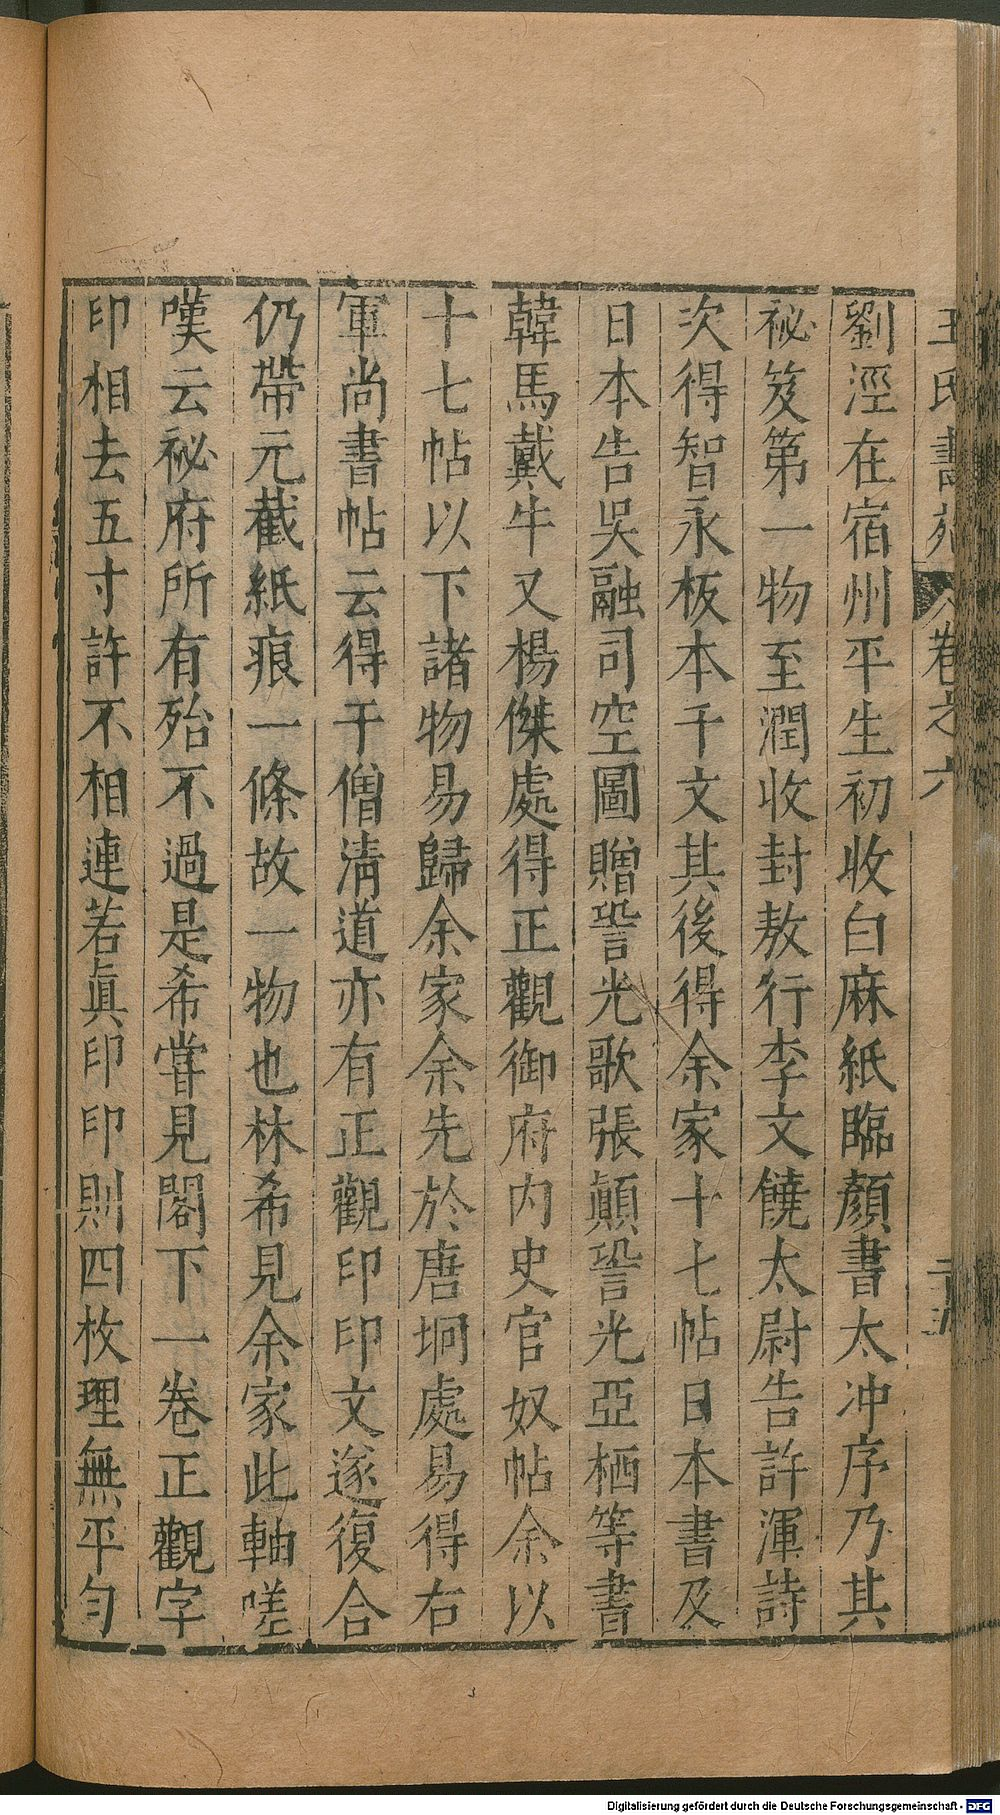 王氏書苑 卷之六
劉涇在宿州平生初收白麻紙臨顔書太冲序乃其
祕笈第一物至潤收封敖行李文饒太尉告許渾詩
次得智永板本千文其後得余家十七帖日本書及
日本告吳融司空圖贈䛒光歌張顛䛒光亞栖等書
韓馬戴牛又楊傑處得正觀御府内史官奴帖余以
十七帖以下諸物易歸余家余先於唐坰處易得右
軍尚書帖云得于僧清道亦有正觀印印文遂復合
仍帶元截紙痕一條故一物也林希見余家此軸嗟
嘆云祕府所有殆不過是希嘗見閣下一卷正觀字
印相去五寸許不相連若眞印印則四枚理無平勻
Digitalisierung gefördert durch die Deutsche Forschungsgemeinschaft - DFG